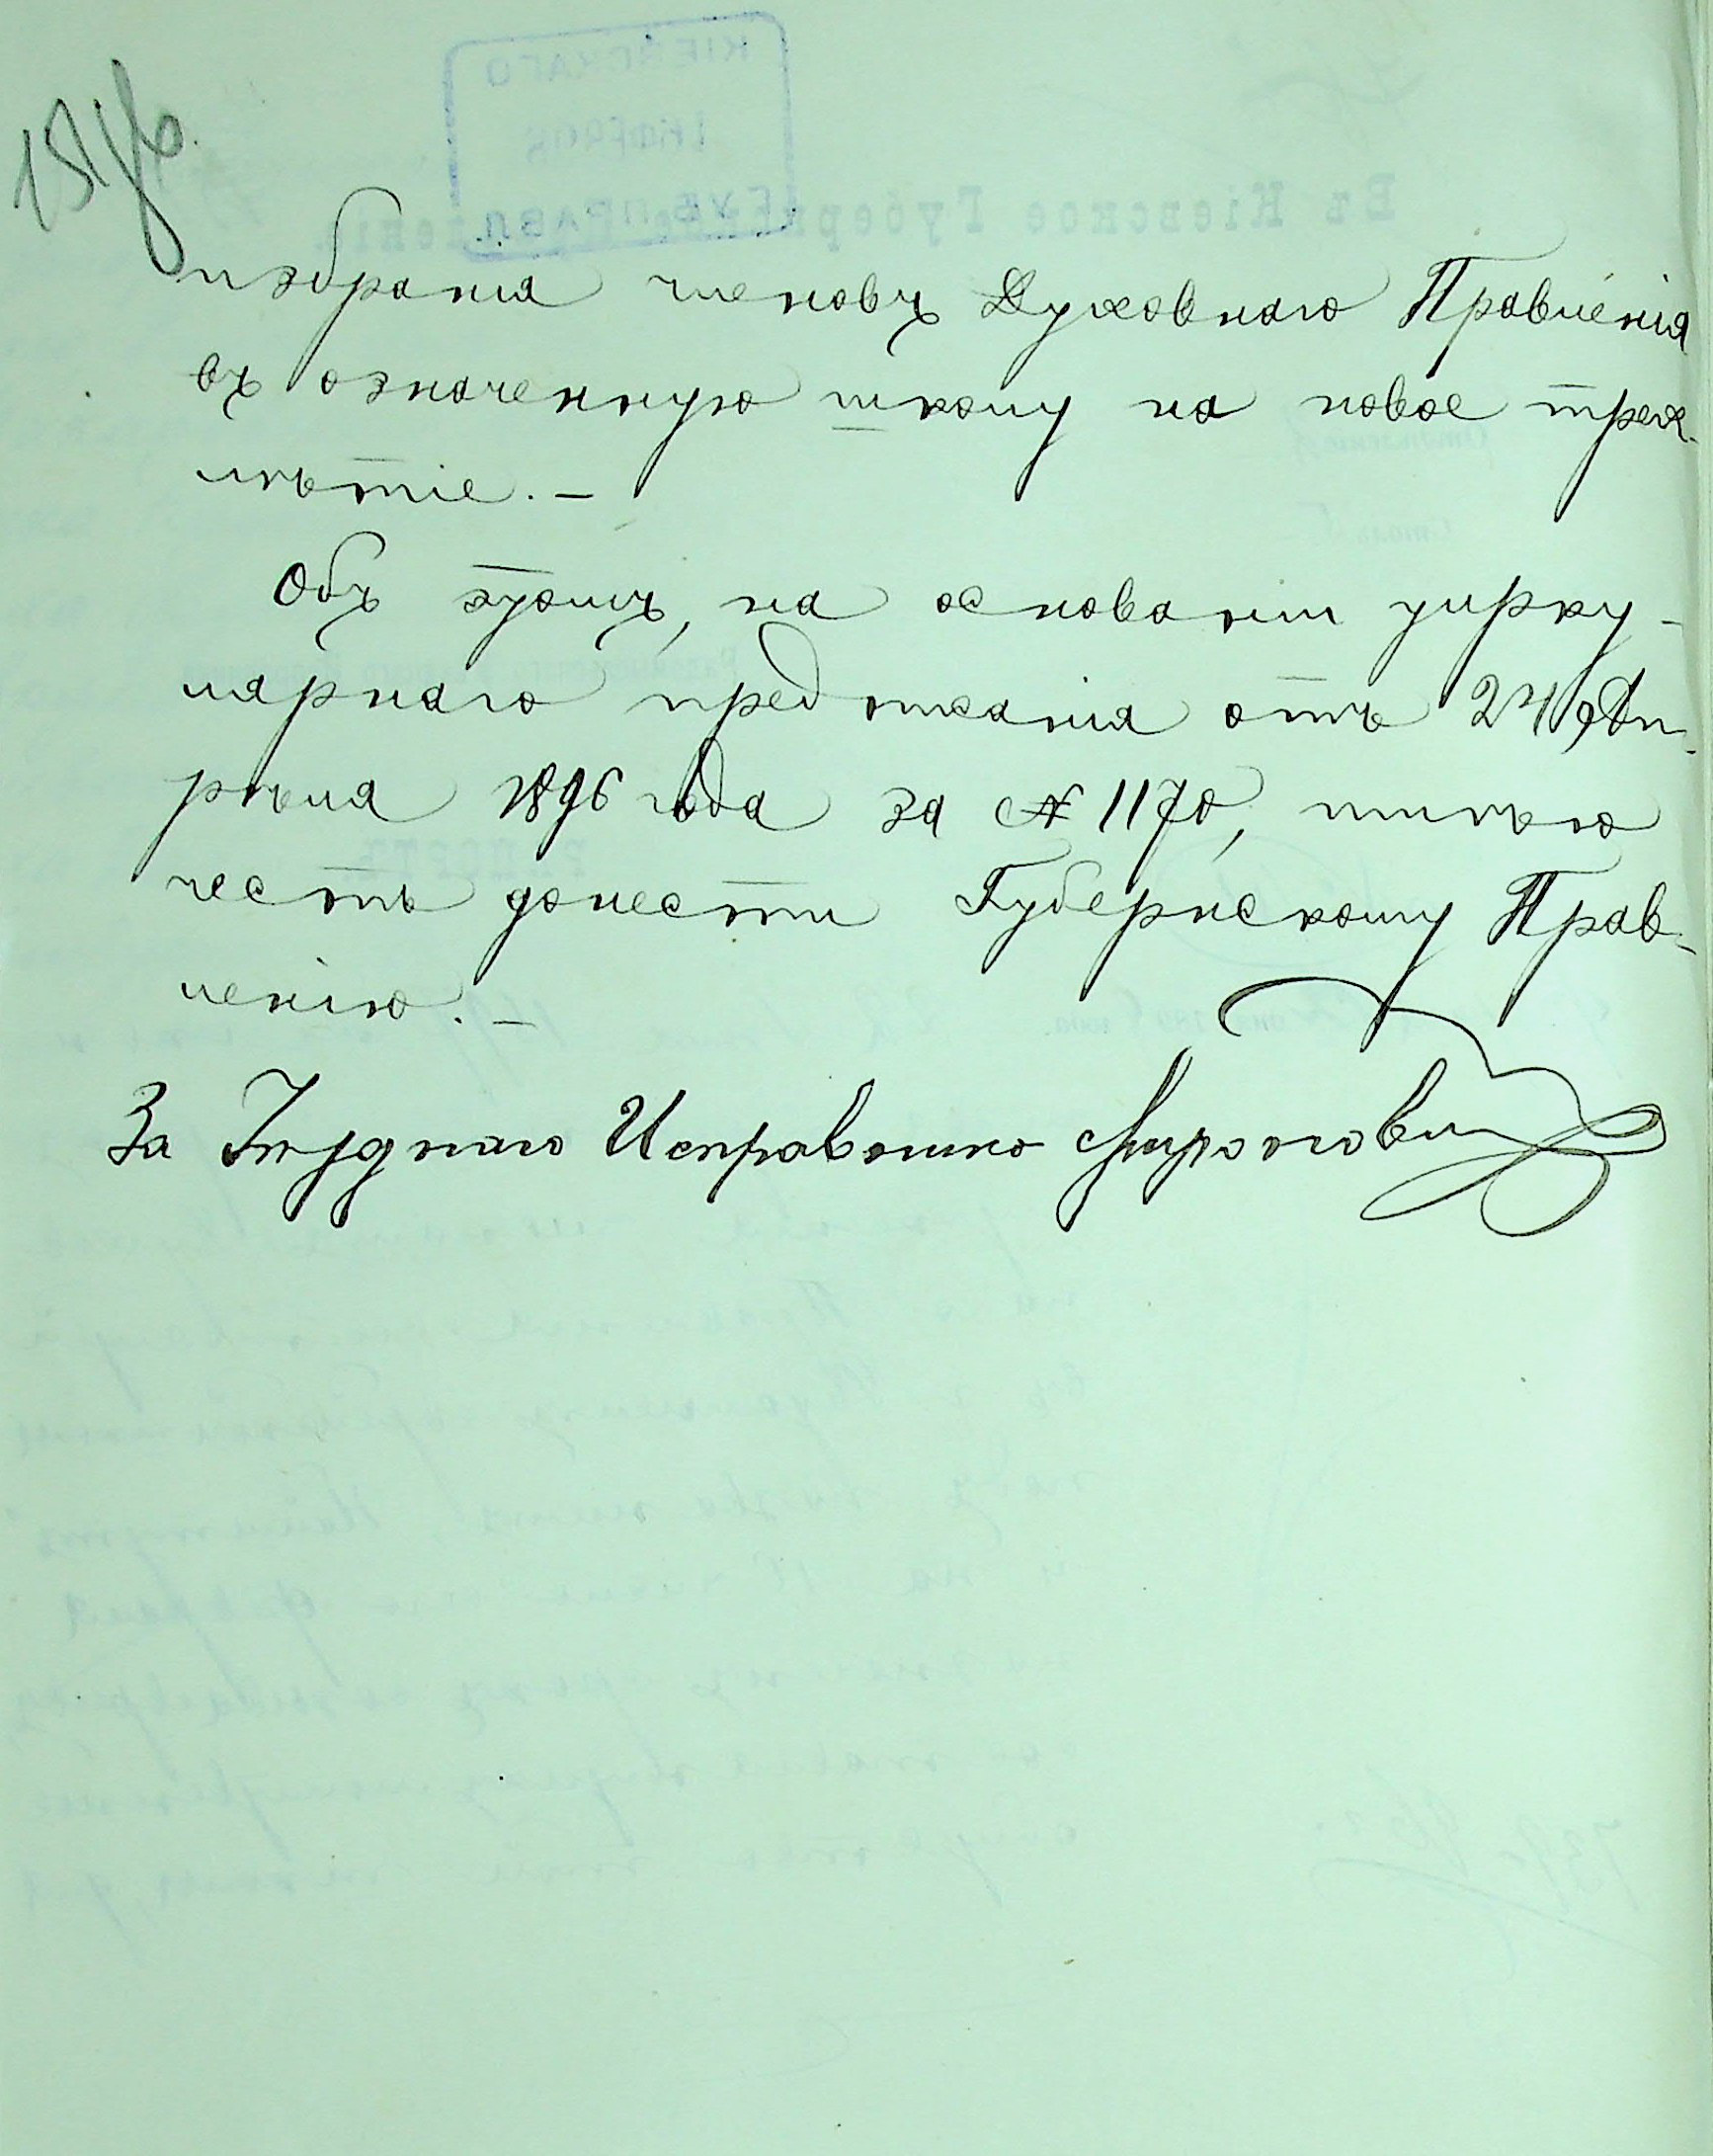 избранія членовъ Духовнаго Правленія
въ означенную школу на новое трех-
лѣтіе. –
Объ этомъ, на основаніи цирку-
лярнаго предписанія отъ 24 Ап-
рѣля 1896 года за № 1170, имѣю
честь донести Губернскому Прав-
ленію. –
За Уѣзднаго Исправника